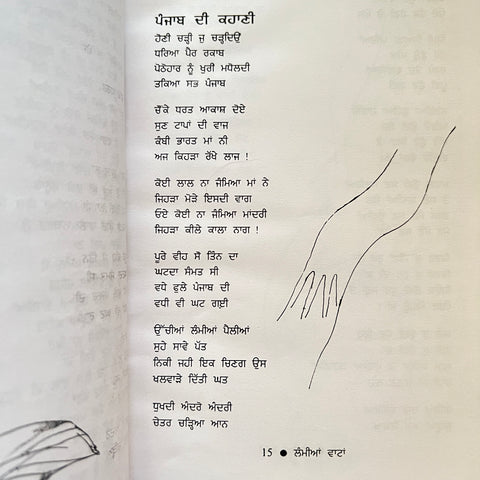 ਪੰਜਾਬ ਦੀ ਕਹਾਣੀ
ਹੋਣੀ ਚੜ੍ਹੀ ਜੁ ਚੜ੍ਹਦਿਉਂ
ਧਰਿਆ ਪੈਰ ਰਕਾਬ
ਪੋਠੋਹਾਰ ਨੂੰ ਖੁਰੀ ਮਧੋਲਦੀ
ਤਕਿਆ ਸਭ ਪੰਜਾਬ
ਚੌਂਕੇ ਧਰਤ ਆਕਾਸ਼ ਦੋਏ
ਸੁਣ ਟਾਪਾਂ ਦੀ ਵਾਜ
ਕੰਬੀ ਭਾਰਤ ਮਾਂ ਨੀ
ਅਜ ਕਿਹੜਾ ਰੱਖੇ ਲਾਜ !
ਕੋਈ ਲਾਲ ਨਾ ਜੰਮਿਆ ਮਾਂ ਨੇ
ਜਿਹੜਾ ਮੋੜੇ ਇਸਦੀ ਵਾਗ
ਓਏ ਕੋਈ ਨਾ ਜੰਮਿਆ ਮਾਂਦਰੀ
ਜਿਹੜਾ ਕੀਲੇ ਕਾਲਾ ਨਾਗ !
ਪੂਰੇ ਵੀਹ ਸੌ ਤਿੰਨ ਦਾ
ਘਟਦਾ ਸੰਮਤ ਸੀ
ਵਧੇ ਫੁਲੇ ਪੰਜਾਬ ਦੀ
ਵਧੀ ਵੀ ਘਟ ਗਈ
ਉੱਚੀਆਂ ਲੰਮੀਆਂ ਪੈਲੀਆਂ
ਸੂਹੇ ਸਾਵੇ ਪੱਤ
ਨਿਕੀ ਜਹੀ ਇਕ ਚਿਣਗ ਉਸ
ਖਲਵਾੜੇ ਦਿੱਤੀ ਘਤ
ਧੁਖਦੀ ਅੰਦਰੋ ਅੰਦਰੀ
ਚੇਤਰ ਚੜ੍ਹਿਆ ਆਨ
15 ● ਲੰਮੀਆਂ ਵਾਟਾਂ